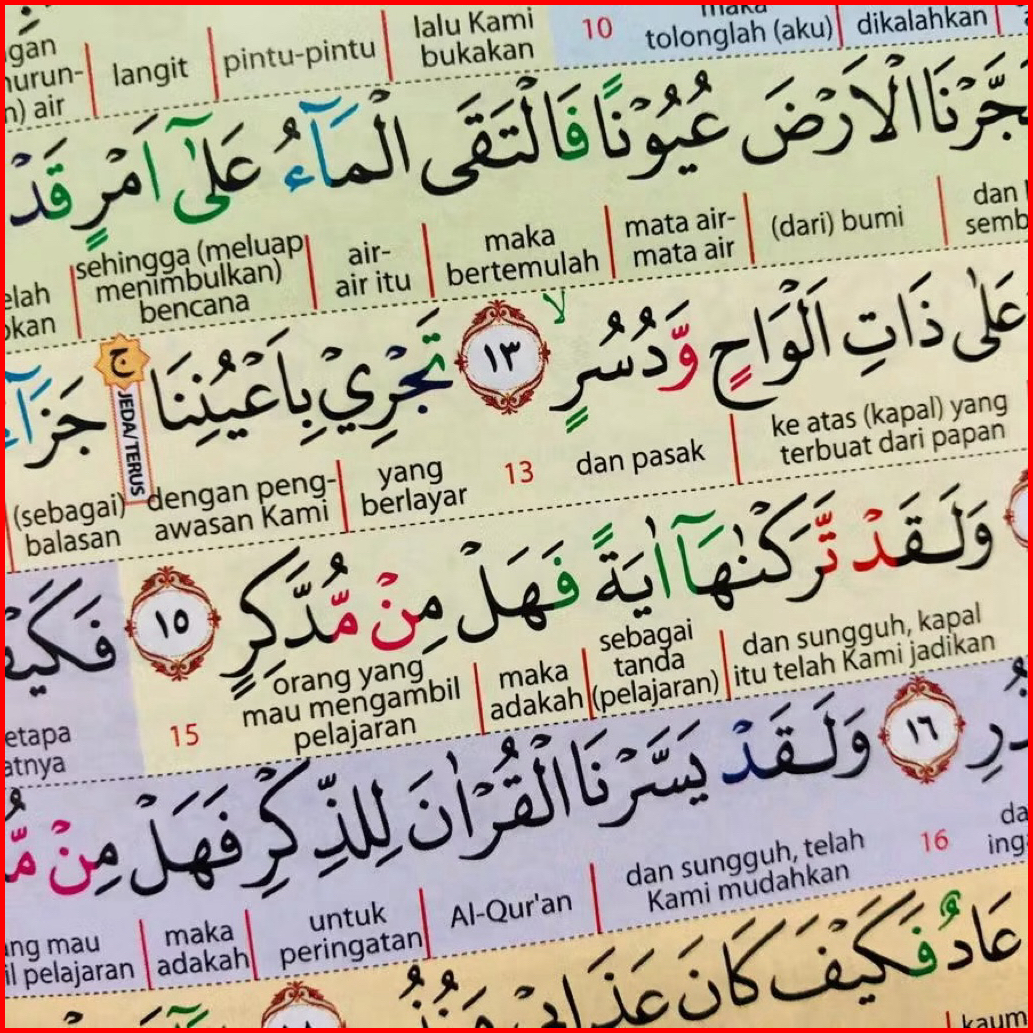 lalu Kami bukakan pintu-pintu langit air
10 tolonglah (aku) dikalahkan
الْاَرْضَ عُيُوْنًا فَالْتَقَى الْمَاۤءُ عَلٰٓى اَمْرٍ قَدْ
dan (dari) bumi mata air-mata air maka bertemulah air-air itu sehingga (meluap menimbulkan) bencana
عَلٰى ذَاتِ اَلْوَاحٍ وَّدُسُرٍ ۙ ١٣ تَجْرِيْ بِاَعْيُنِنَا ۚ
JEDA/TERUS
ke atas (kapal) yang terbuat dari papan dan pasak 13 yang berlayar dengan peng-awasan Kami (sebagai) balasan
وَلَقَدْ تَّرَكْنٰهَآ اٰيَةً فَهَلْ مِنْ مُّدَّكِرٍ ١٥
dan sungguh, kapal itu telah Kami jadikan sebagai tanda (pelajaran) maka adakah orang yang mau mengambil pelajaran 15
١٦ وَلَقَدْ يَسَّرْنَا الْقُرْاٰنَ لِلذِّكْرِ فَهَلْ مِنْ
16 dan sungguh, telah Kami mudahkan Al-Qur'an untuk peringatan maka adakah mau pelajaran
عَادٌ فَكَيْفَ كَانَ عَذَابِيْ
kaum